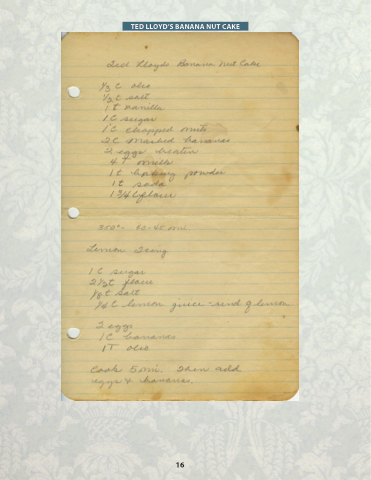 TED LLOYD'S BANANA NUT CAKE
Ted Lloyds Banana Nut Cake
1/3 C oleo
1/2 t salt
1 t vanilla
1 C sugar
1 C chopped nuts
2 C mashed bananas
2 eggs beaten
4 T milk
1 t baking powder
1 t soda
1 3/4 C flour
350°- 40-45 min
Lemon Icing
1 C sugar
2 1/2 t flour
1/8 t salt
1/4 C lemon juice - rind of lemon
2 eggs
1 C bananas
1 T oleo
Cook 5 min. Then add
eggs & bananas.
16